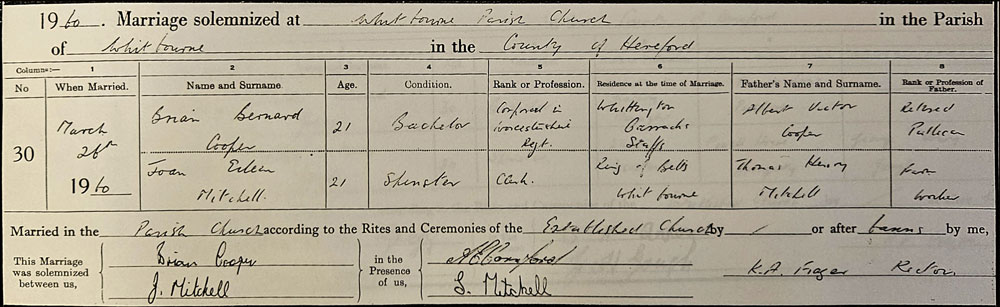 1960. Marriage solemnized at Whitbourne Parish Church in the Parish
of Whitbourne in the County of Hereford
Columns:— 1 2 3 4 5 6 7 8
No When Married. Name and Surname Age. Condition. Rank or Profession. Residence at the time of Marriage. Father's Name and Surname. Rank or Profession of Father.
30 March 26th 1960
Brian Bernard Cooper 21 Bachelor Corporal in Worcestershire Regt. Whittington Barracks Staffs Albert Victor Cooper Retired Publican
Joan Eileen Mitchell. 21 Spinster Clerk. Ring of Bells Whitbourne Thomas Henry Mitchell Farm worker
Married in the Parish Church according to the Rites and Ceremonies of the Established Church by / or after banns by me,
This Marriage was solemnized between us, Brian Cooper in the Presence of us,
J. Mitchell S. Mitchell K.A. Rector